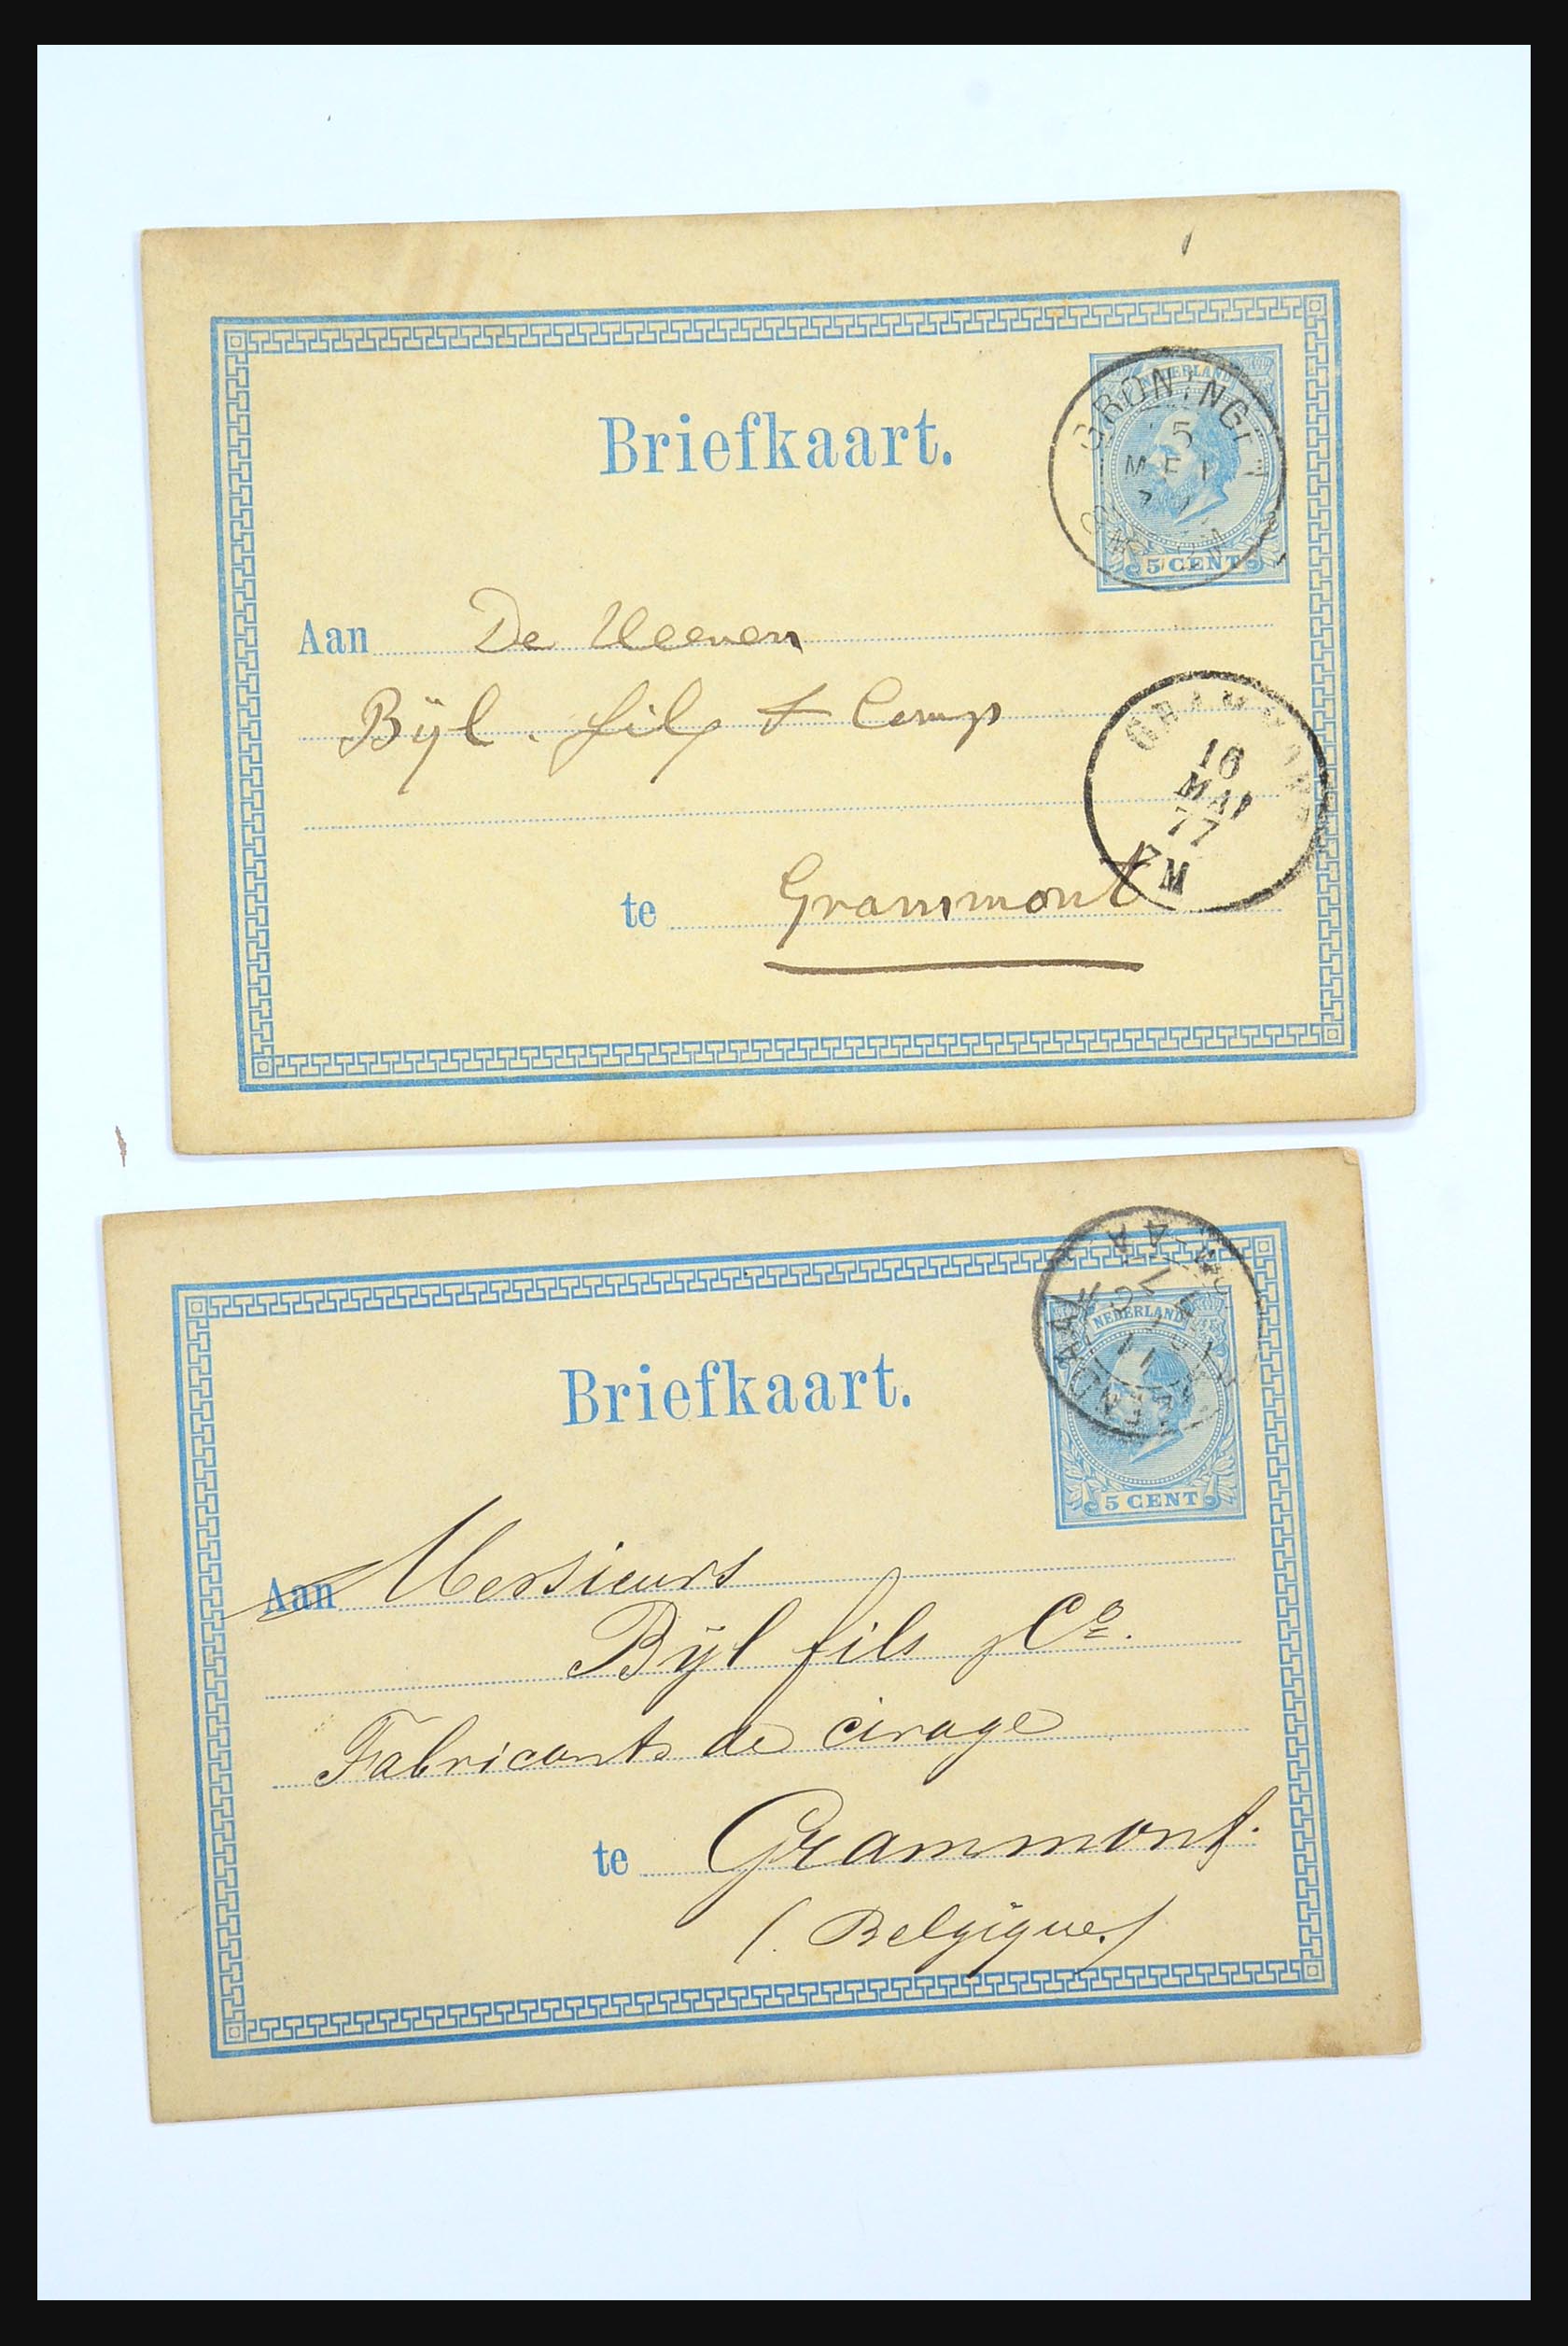 Briefkaart.
NEDERLAND
GRONINGEN
MEI
5 CENT
Aan De Heeren
Bÿl. fils & Comp
GRAMMONT
16
MAI
77
te Grammont
Briefkaart.
NEDERLAND
5 CENT
Aan Messieurs
Bÿl fils & Cº.
Fabricants de cirage
te Grammont.
(Belgique)